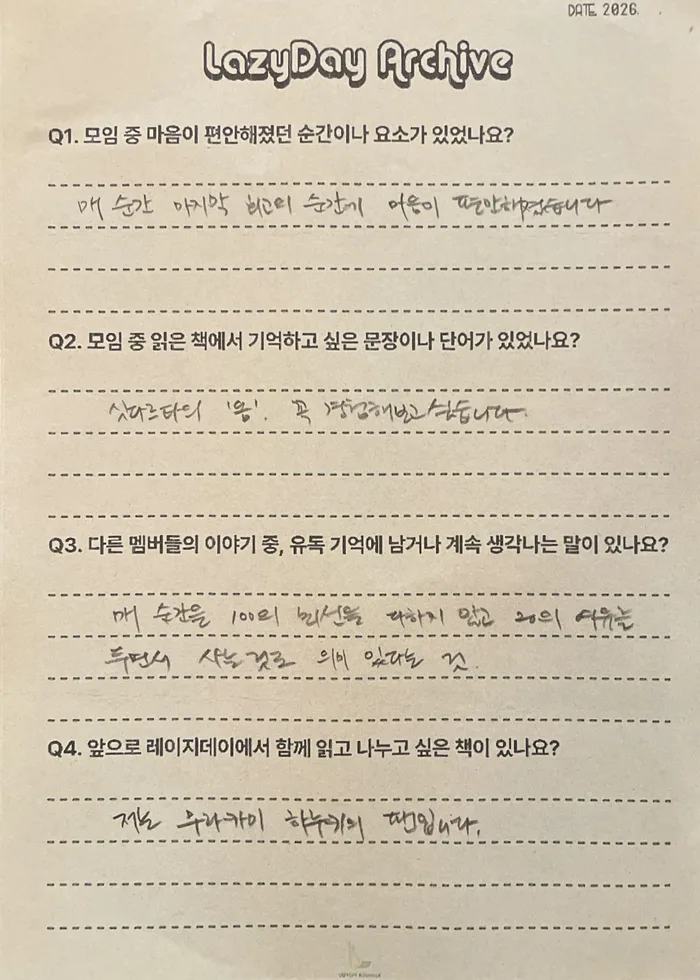 DATE 2026. .
LazyDay Archive
Q1. 모임 중 마음이 편안해졌던 순간이나 요소가 있었나요?
매 순간 마지막 최고의 순간까지 마음이 편안해졌습니다
Q2. 모임 중 읽은 책에서 기억하고 싶은 문장이나 단어가 있었나요?
싯다르타의 '옴'. 꼭 경험해보고 싶습니다.
Q3. 다른 멤버들의 이야기 중, 유독 기억에 남거나 계속 생각나는 말이 있나요?
매 순간을 100의 최선을 다하지 않고 20의 여유를
두면서 사는 것도 의미 있다는 것.
Q4. 앞으로 레이지데이에서 함께 읽고 나누고 싶은 책이 있나요?
저는 무라카미 하루키의 팬입니다.